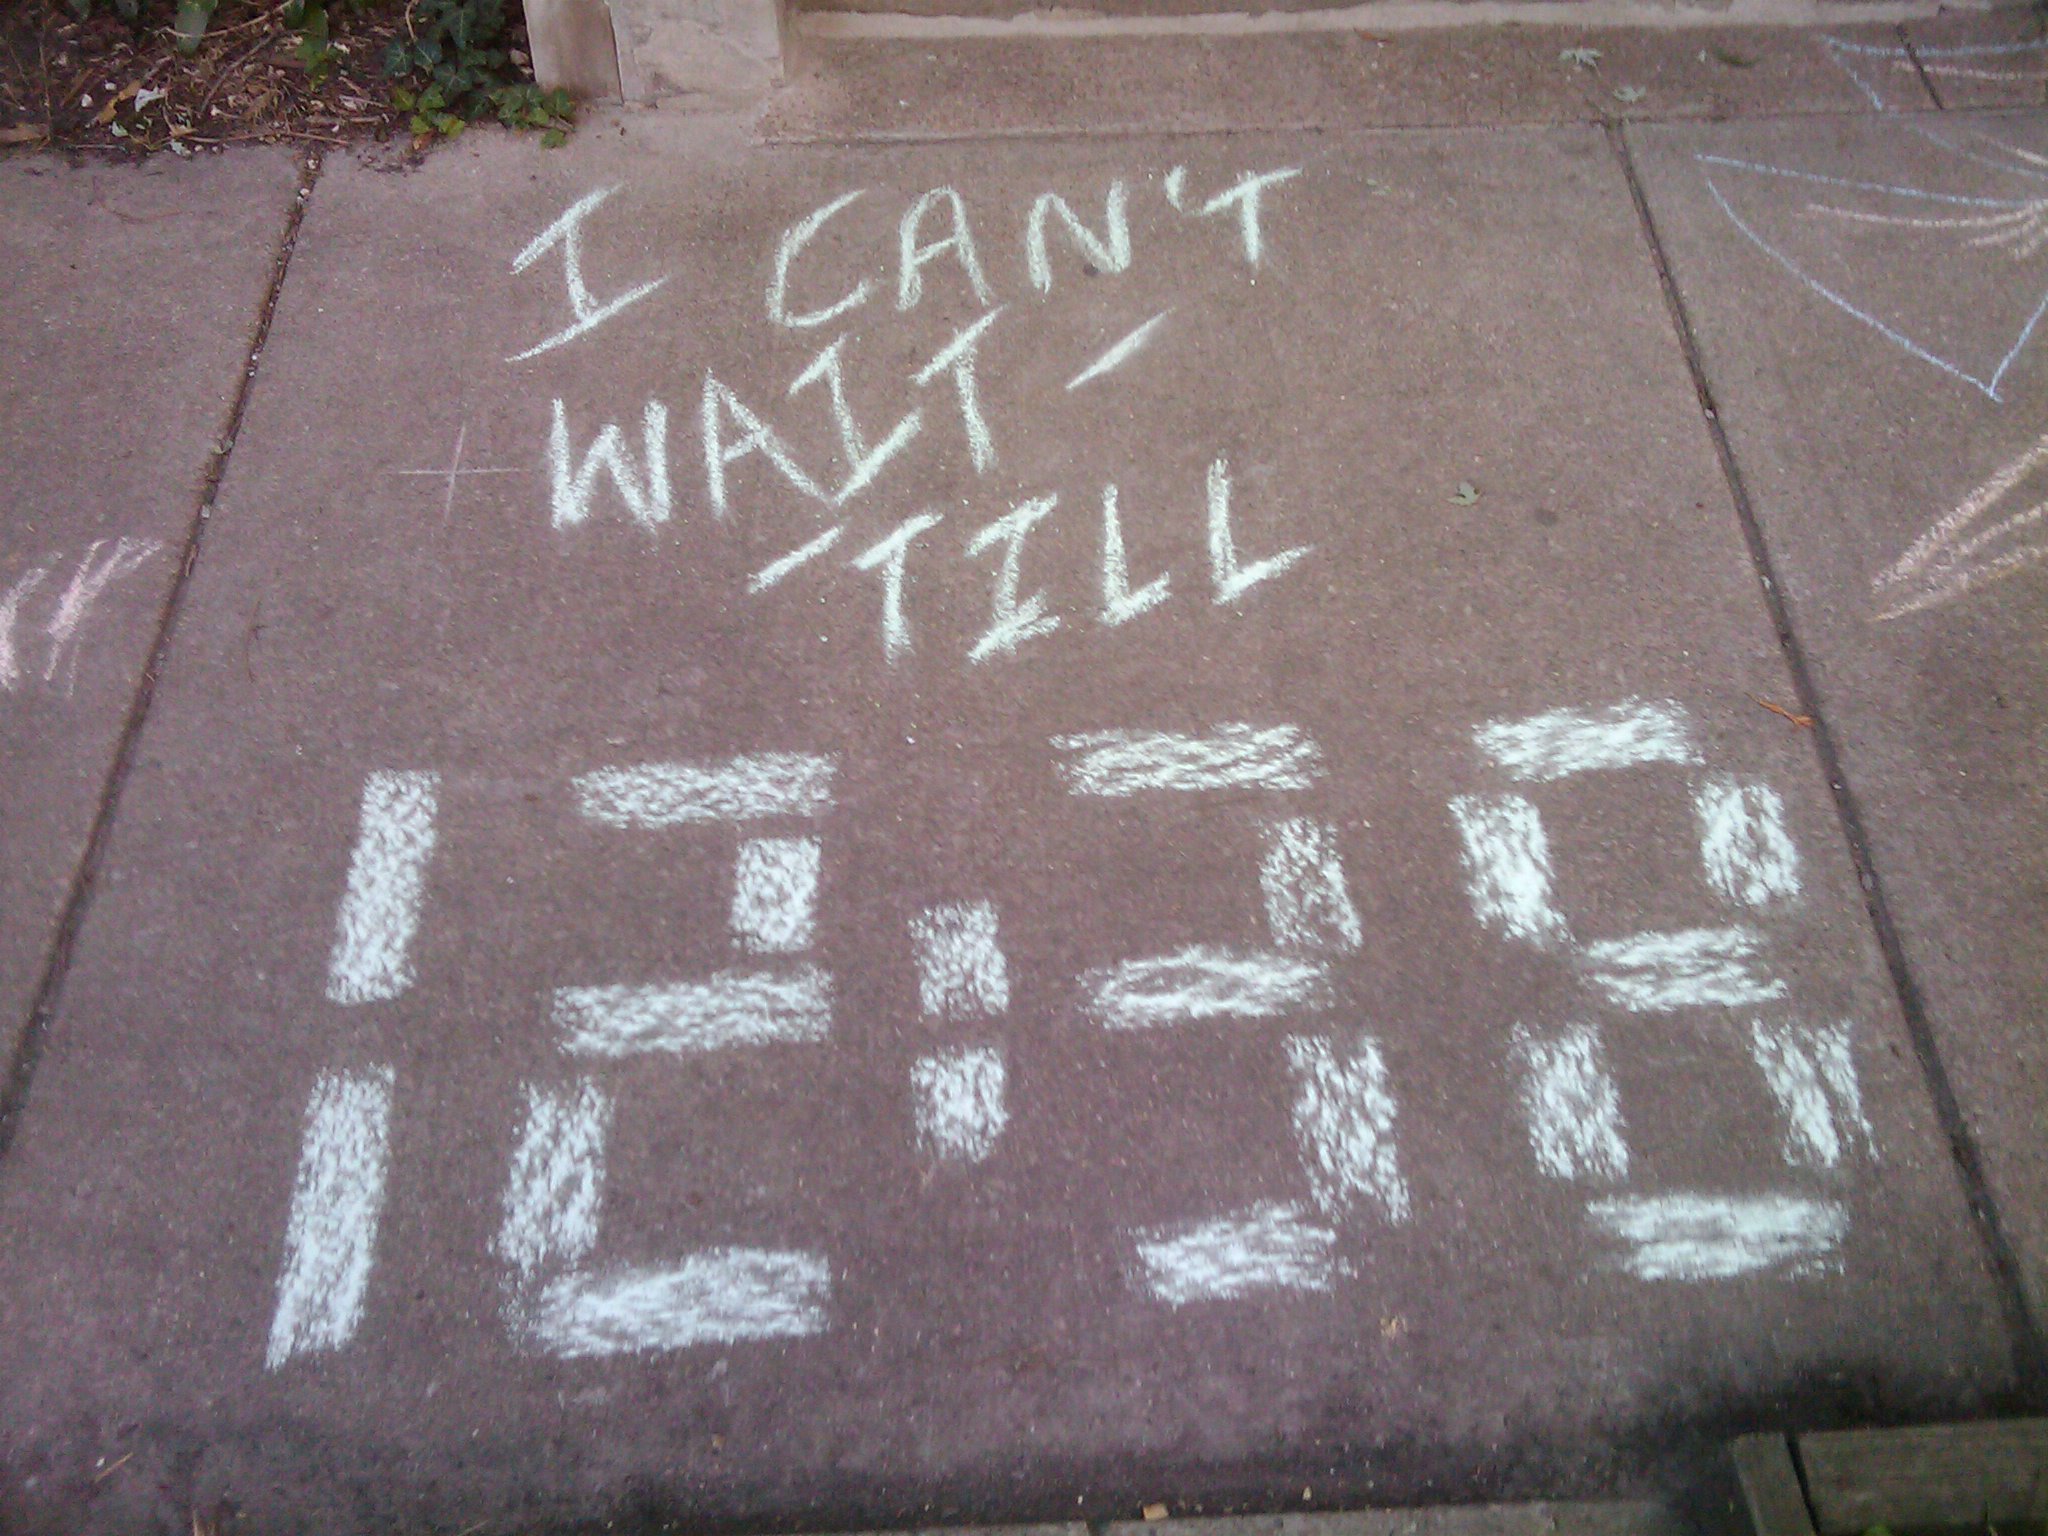 I CAN'T
WAIT -
- TILL
12:38